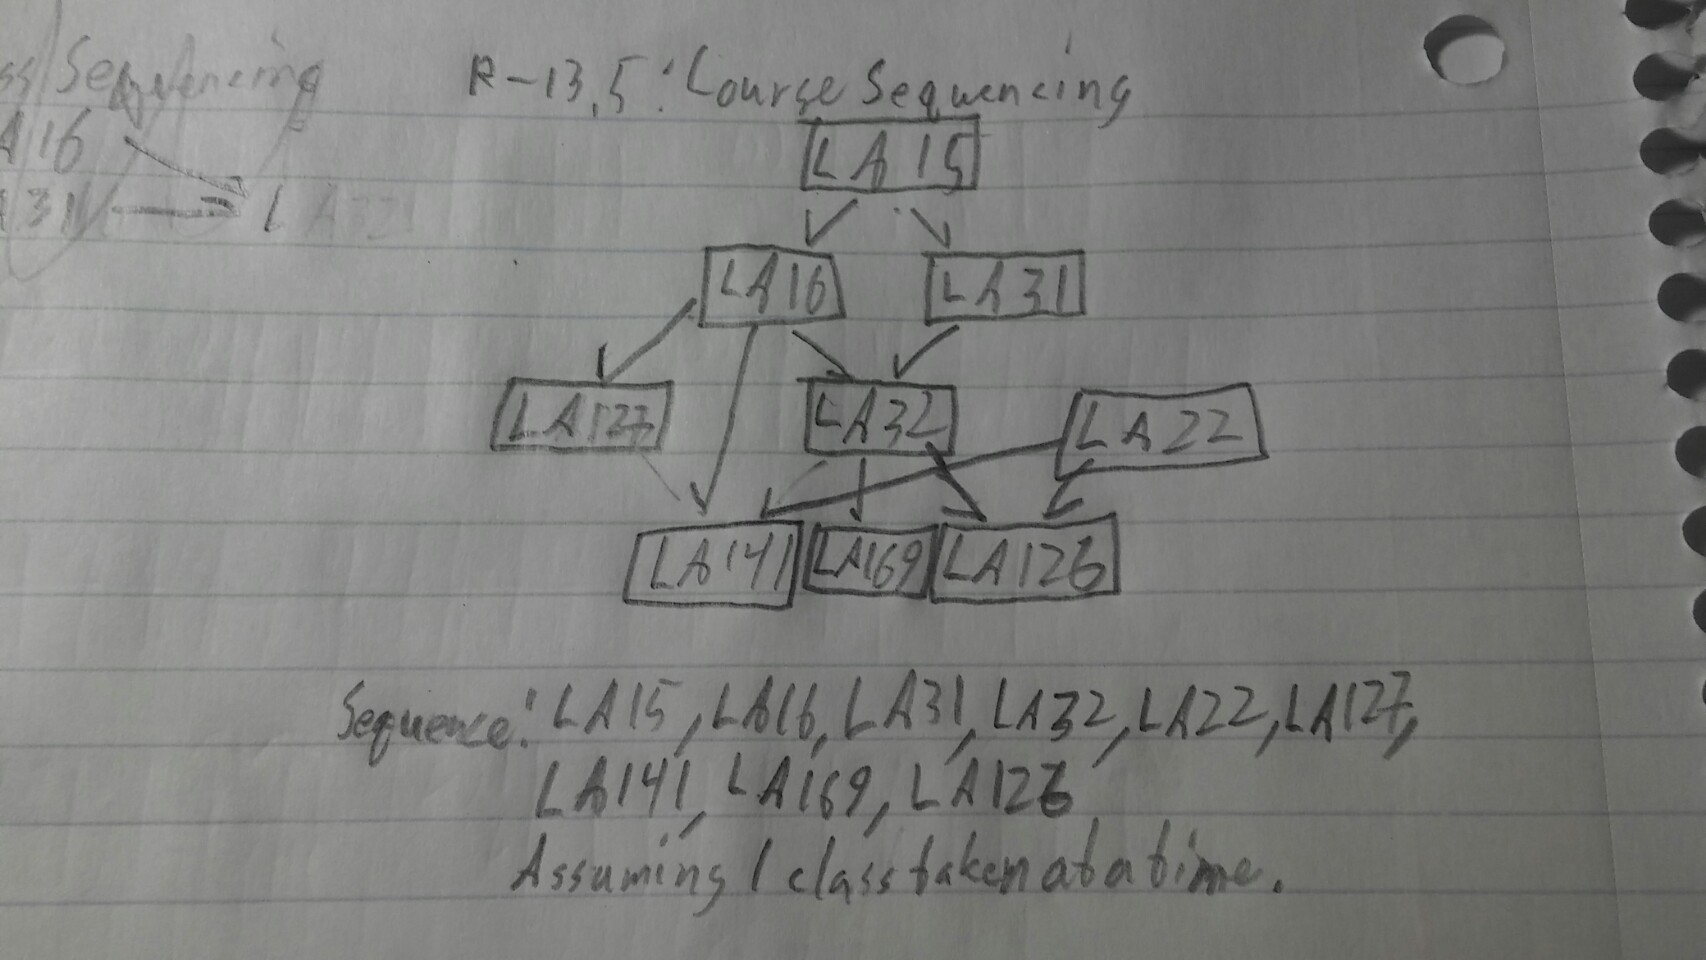 ss Sequencing
A16
A31 LA32
R-13.5: Course Sequencing
LA15
LA16 LA31
LA127 LA32 LA22
LA141 LA169 LA126
Sequence: LA15, LA16, LA31, LA32, LA22, LA127,
LA141, LA169, LA126
Assuming 1 class taken at a time.